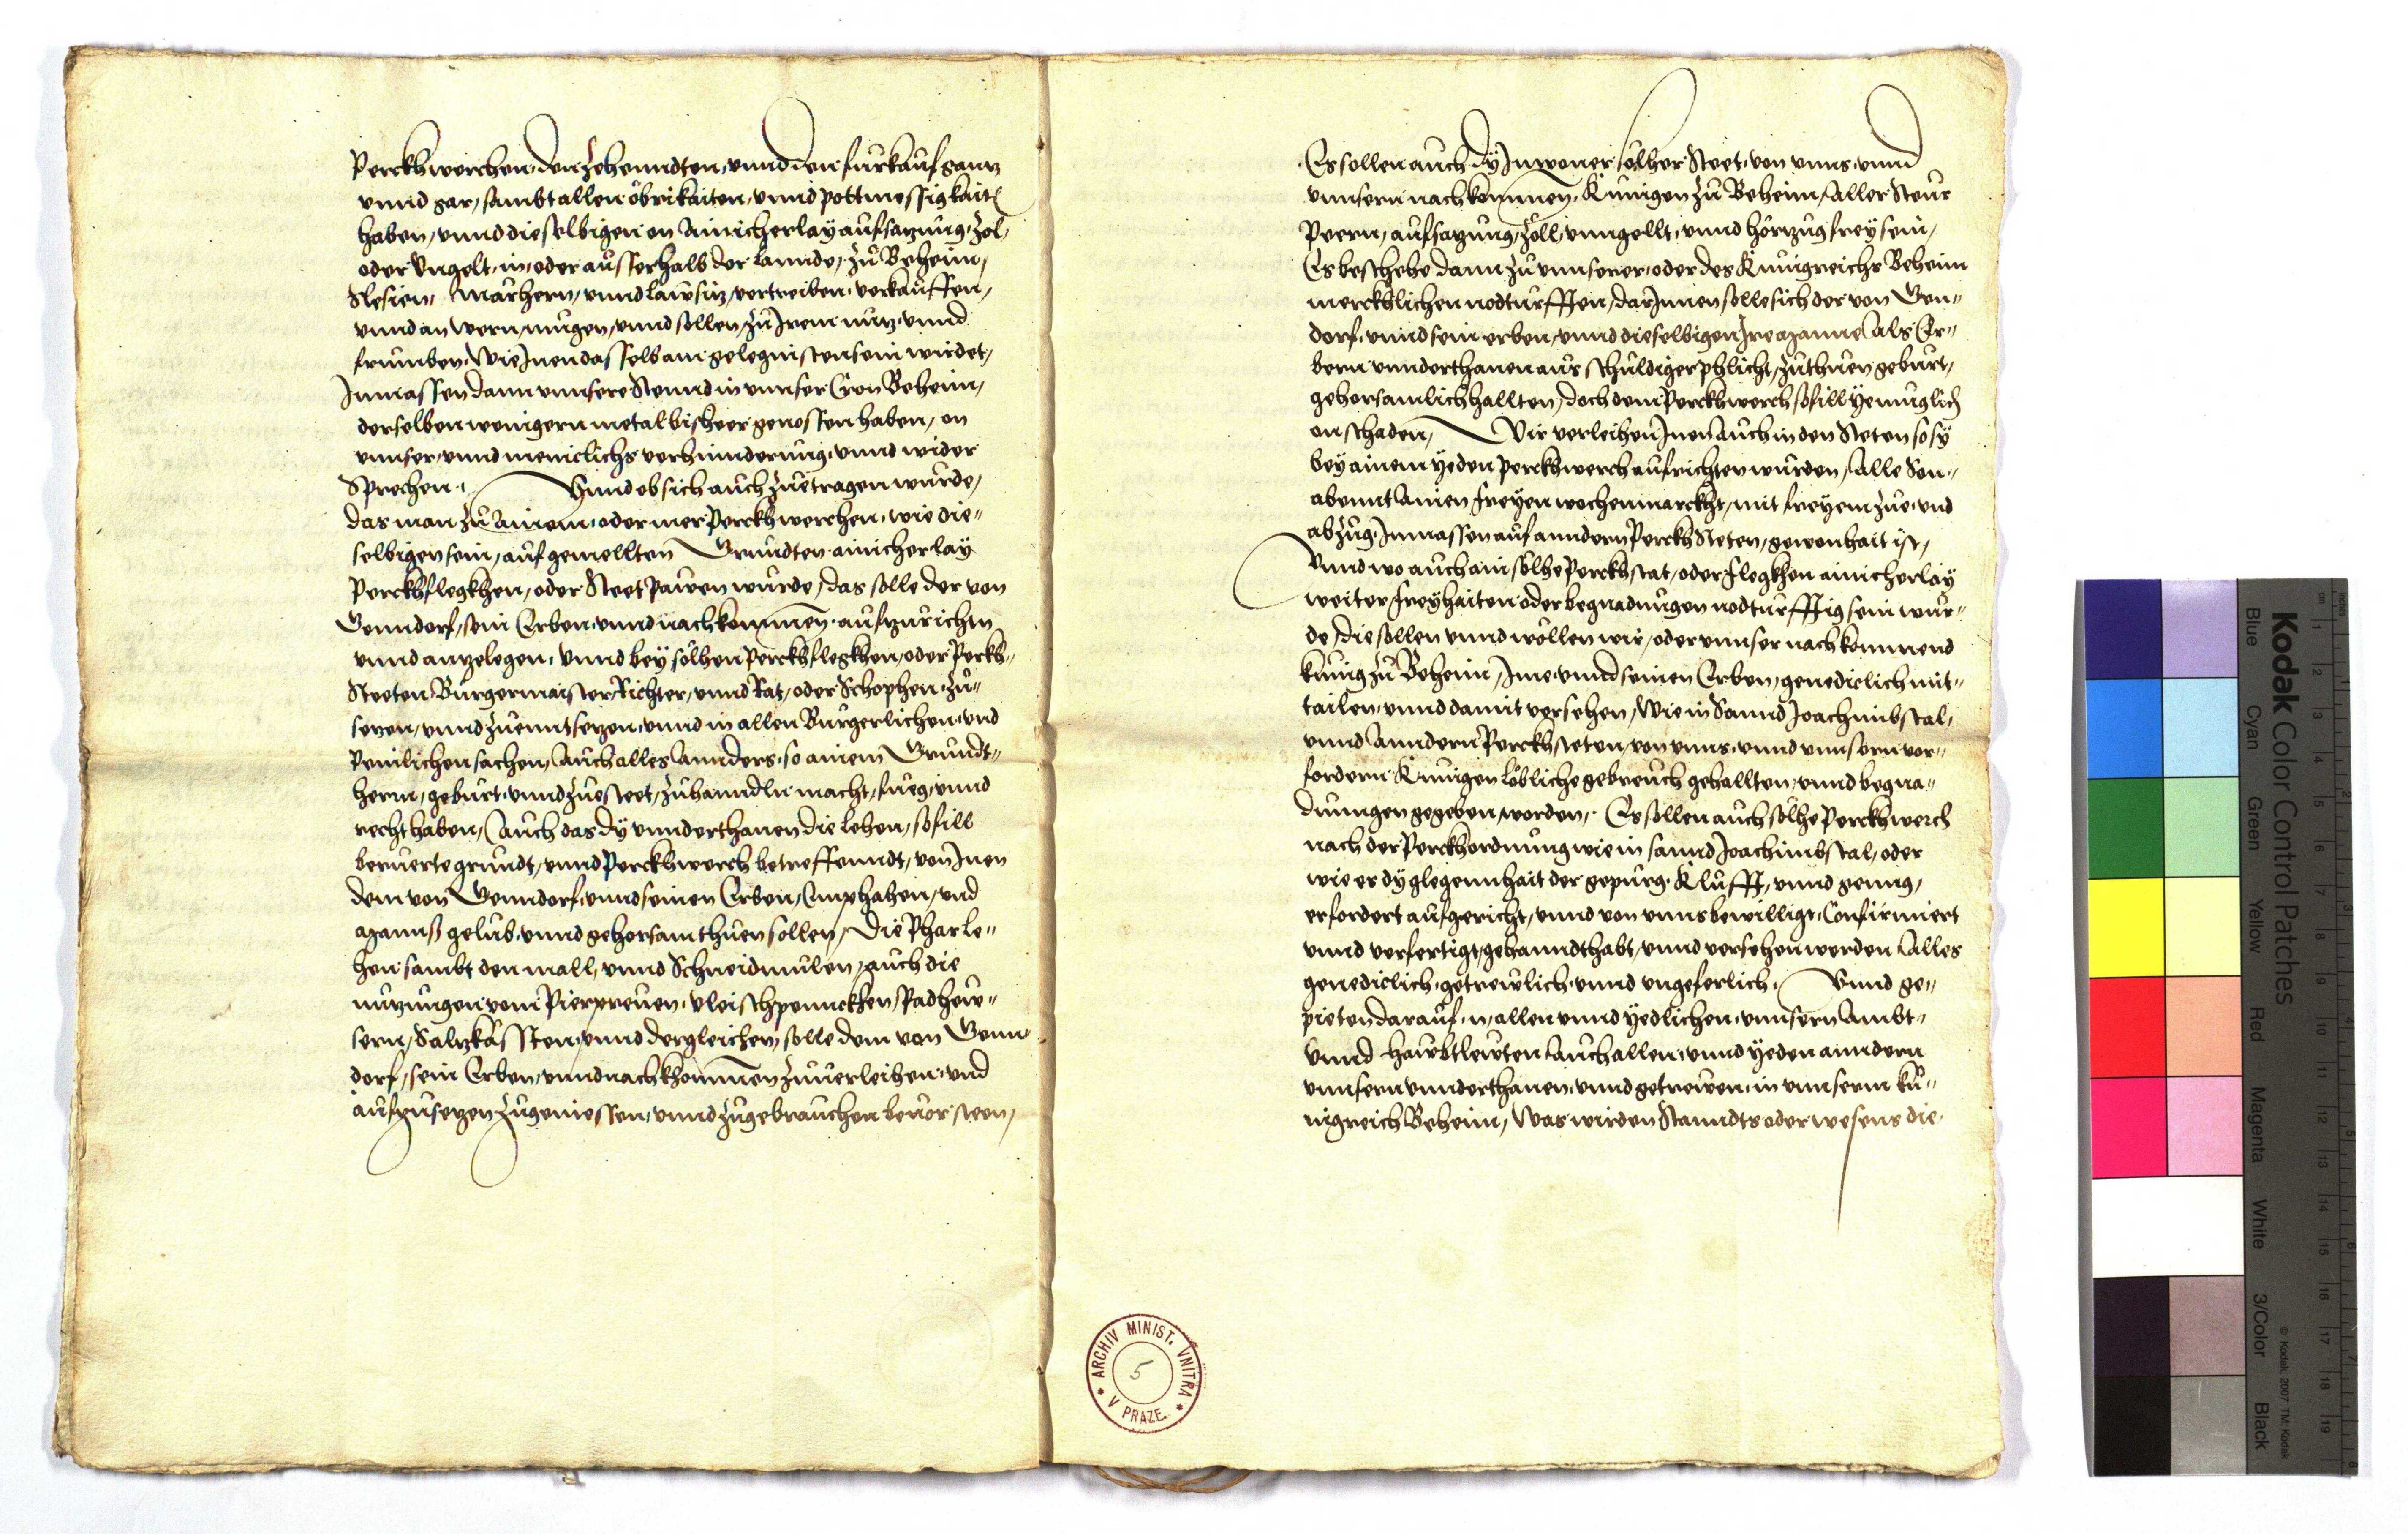 Perckhwerchen, den Zehenndten, vnnd den furkauf ganz
vnnd gar, sambt allen obrikaiten, vnnd pottmessigkait
haben, vnnd dieselbigen on ainicherlay aufsazung, Zol,
oder Vngelt, in, oder ausserhalb der lannde, zu Beheim,
Slesien, Marhern, vnnd lawsiz, vertreiben, verkauffen,
vnnd an wern, mugen, vnnd sollen, zu Irem nuz, vnnd
frumben, Wie Inen dasselb am gelegnisten sein wirdet,
Inmassen dann vnnsere Stennd in vnnser Cron Beheim,
derselben wenigern metal bisheer genossen haben, on
vnnser, vnnd meniclichs verhinnderung, vnnd wider
Sprechen. Vnnd ob sich auch zuetragen wurde,
das man zu ainem, oder mer Perckhwerchen, wie die-
selbigen sein, auf gemellten Grundten ainicherlay
Perckhflegkhen, oder Steet pawen wurde, das solle der von
Genndorf, sein Erben, vnnd nachkommen, aufzurichtn
vnnd anzelegen, Vnnd bey solhen Perckhflegkhen, oder Perkh-
Steeten Burgermaister, Richter, vnnd Rat, oder Schophen zu-
sezen, vnnd zuenntsezen, vnnd in allen Burgerlichen, vnd
Peinlichen sachen, Auch alles Annders, so ainem Grundt-
herrn, geburt, vnnd zuesteet, zuhanndln macht, fueg, vnnd
recht haben, Auch das dy vnnderthanen die lehen, sofill
beruerte grundt, vnnd Perckhwerch betreffenndt, von Inen
dem von Genndorf, vnnd seinen Erben, Emphahen, vnd
aganns gelub, vnnd gehorsam thuen sollen, Die Pharle-
hen sambt den mall, vnnd Schneidmulen, auch die
nuzungen vom Pierprewen, vleischpennckhen, Padhew-
sern, Salzkassten, vnnd dergleichen, solle dem von Genn-
dorf, sein Erben, vnnd nachkhommen zuuerleihen, vnd
aufzusezen zugeniessen, vnnd zugebrauchen beuor steen,
Es sollen auch dy Inwoner solher Steet, von vnns, vnnd
vnnsern nachkommen, Kunigen zu Beheim, Aller Steur
Peern, aufsazung, zoll, vnngellt, vnnd hörzug frey sein,
Es beschehe dann zu vnnserer, oder des Kunigreichs Beheim
merckhlichen nodturfften, darinnen solle sich der von Gen-
dorf, vnnd sein erben, vnnd dieselbigen Ire aganne als Er-
bern vnnderthanen aus schuldiger phlicht, zuthuen geburt,
gehorsamlich hallten, doch dem Perckhwerch sofill ye muglich
on schaden, Wir verleihen Inen Auch in den Steten so sy
bey ainem yeden perckhwerch aufrichten wurden, Alle Son-
abennt Ainen freyen wochenmarckht, mit freyem zue, vnd
abzug, Inmassen auf anndern Perckh Steten, gewonhait ist,
Vnnd wo auch ain solhe Perckhstat, oder flegkhen ainicherlay
weiter freyhaiten oder begnadungen nodturfftig sein wur-
de, Die sollen vnnd wollen wir, oder vnnser nachkommend
kunig zu Beheim, Ime, vnnd seinen Erben, genediclich mit-
tailen, vnnd damit versehen, Wie in Sannd Joachimbstal,
vnnd Anndern Perckhsteten, von vnns, vnnd vnnsern vor-
fordern Kunigen löbliche gebreuch gehallten, vnnd begna-
dungen gegeben worden, Es sollen auch solhe Perckhwerch
nach der Perckhordnung wie in sannd Joachimbstal, oder
wie er dy glegennhait der gepurg, Klufft, vnnd genng,
erfordert aufgericht, vnnd von vnns bewilligt, Confirmiert
vnnd verfertigt, gehanndthabt, vnnd versehen werden Alles
genediclich, getrewlich, vnnd vngeferlich, Vnnd ge-
pieten darauf, n, allen vnnd yedlichen, vnnsern Ambt-
vnnd Hawbtlewten Auch allen, vnnd yeden anndern
vnnsern vnnderthanen, vnnd getrewen, in vnnserm ku-
nigreich Beheim, Was wirden Stanndts oder wesens die
ARCHIV MINIST. VNITRA V PRAZE.
5
Kodak Color Control Patches
Blue Cyan Green Yellow Red Magenta White 3/Color Black
© Kodak, 2007 TM: Kodak